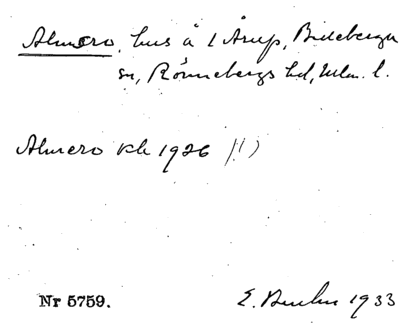 Almero, hus å 1 Årup, Billeberga
sn, Rönnebergs hd, Mlm. l.
Almero kb 1926 (!)
Nr 5759. E. 1933